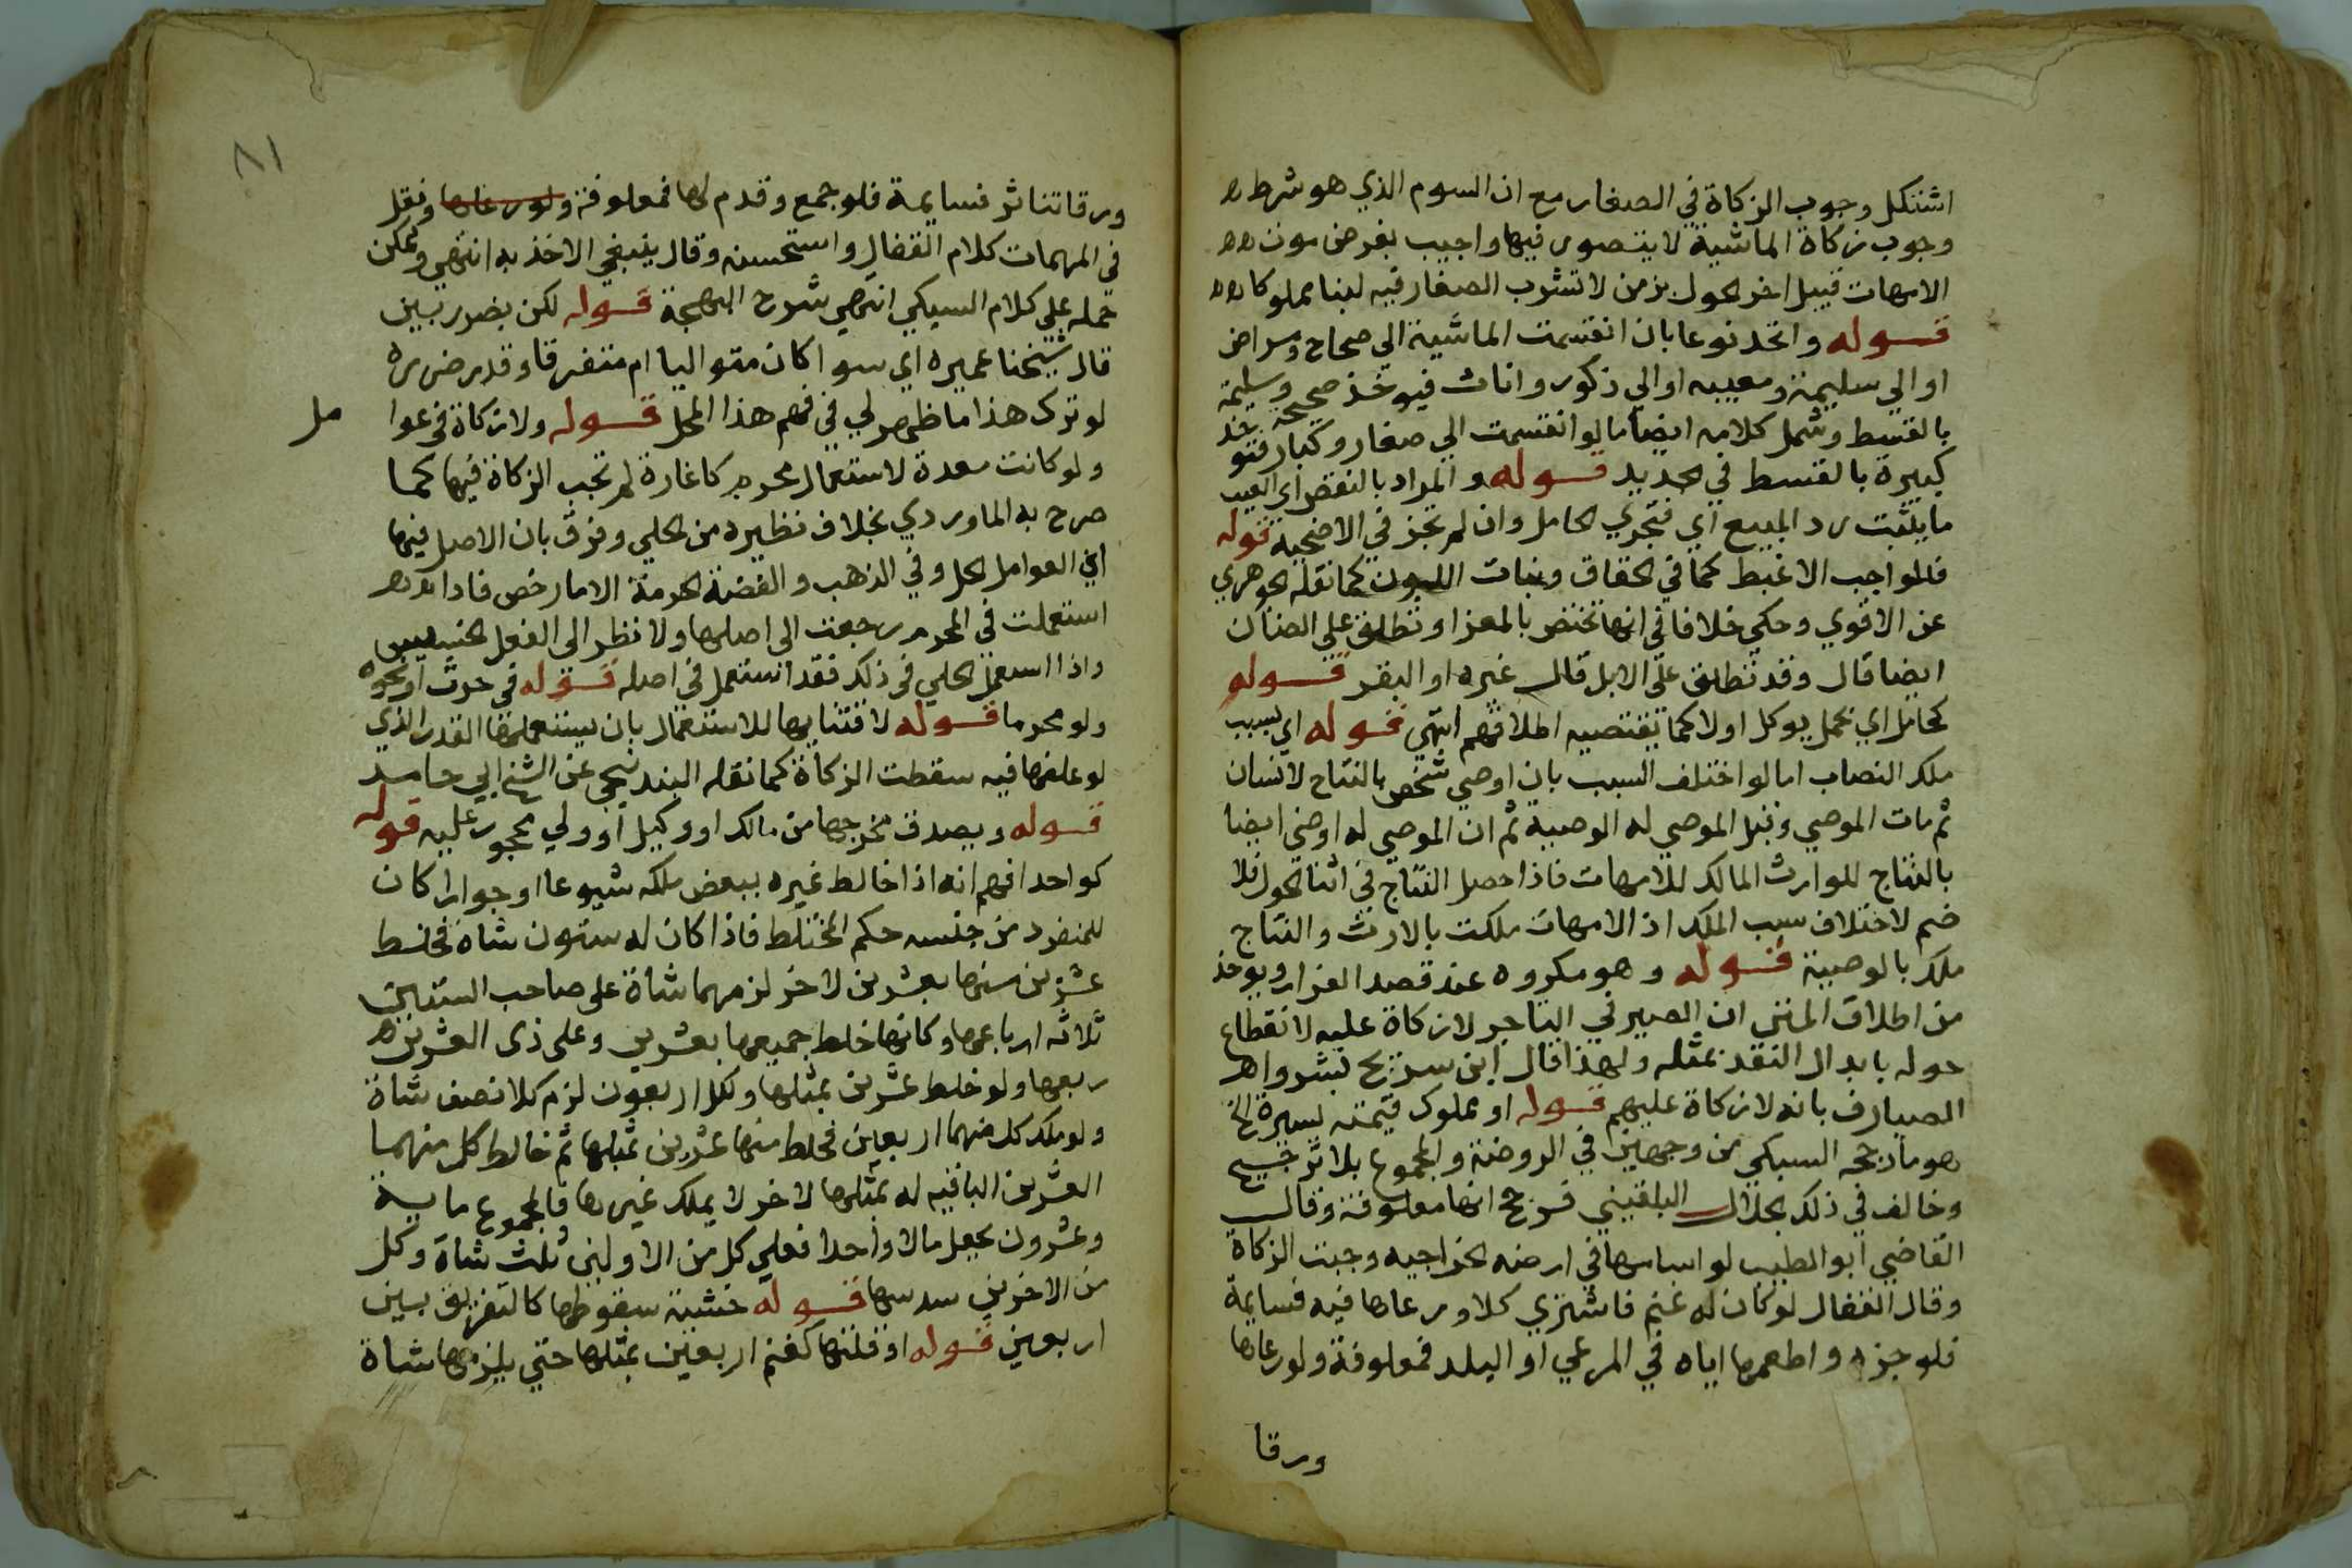 اشتكل وجوب الزكاة في الصغار مع ان السوم الذي هو شرط
وجوب زكاة الماشية لا يتصور فيها واجيب بفرض موت
الامهات قبيل اخر الحول بزمن لا تشرب الصغار فيه لبنا مملوكا
قوله واتحد نوعا بان انقسمت الماشية الي صحاح ومراض
او الي سليمة ومعيبه او الي ذكور واناث فيوخذ صحيحة وسليمة
بالقسط وشمل كلامه ايضا ما لو انقسمت الي صغار وكبار فتوخذ
كبيرة بالقسط في الجديد قوله والمراد بالنقص اي العيب
ما يثبت رد المبيع اي فتجزي الحامل وان لم تجز في الاضحية قوله
فالواجب الاغبط كما في الحقاق وبنات اللبون كما نقله الجوهري
عن الاقوي وحكي خلافا في انها تختص بالمعز او تطلق علي الضان
ايضا قال وقد تطلق علي الابل قال غيره او البقر قوله
كحامل اي بحمل يوكل اولا كما تقتضيه اطلاقهم انتهي قوله اي بسبب
ملك النصاب اما لو اختلف السبب بان اوصي شخص بالنتاج لانسان
ثم مات الموصي وقبل الموصي له الوصية ثم ان الموصي له اوصي ايضا
بالنتاج للوارث المالك للامهات فاذا حصل النتاج في اثنا الحول فلا
ضم لاختلاف سبب الملك اذ الامهات ملكت بالارث والنتاج
ملك بالوصية قوله وهو مكروه عند قصد الفرار ويوخذ
من اطلاق المتن ان الصيرفي التاجر لا زكاة عليه لانقطاع
حوله بابدال النقد بمثله ولهذا قال ابن سريج بشروا
الصيارف بانه لا زكاة عليهم قوله او مملوك قيمته يسيرة الخ
هو ما رجحه السبكي من وجهين في الروضة والمجموع بلا ترجيح
وخالف في ذلك الجلال البلقيني فرجح انها معلوفة وقال
القاضي ابو الطيب لو اسامها في ارضه الخراجيه وجبت الزكاة
وقال القفال لو كان له غنم فاشتري كلا ورعاها فيه فسايمة
فلو جزه واطعمها اياه في المرعي او البلد فمعلوفة ولو رعاها
ورقا
٨١
ورقا تناثر فسايمة فلو جمع وقدم لها فمعلوفة ولو رعاها ونقل
في المهمات كلام القفال واستحسنه وقال ينبغي الاخذ به انتهي ويمكن
حمله علي كلام السبكي انتهي شرح البهجة قوله لكن بضرر بين
قال شيخنا عميره اي سوا كان متواليا ام متفرقا وقدر ضرره
لو ترك هذا ما ظهر لي في فهم هذا المحل قوله ولا زكاة في عوا
مل
ولو كانت معدة لاستعمال محرم كاغارة لم تجب الزكاة فيها كما
صرح به الماوردي بخلاف نظيره من الحلي وفرق بان الاصل فيها
اي العوامل الحل وفي الذهب والفضة الحرمة الا ما رخص فاذا
استعملت في المحرم رجعت الى اصلها ولا نظر الى الفعل الخسيس
واذا استعمل الحلي في ذلك فقد استعمل في اصله قوله في حرث او نحوه
ولو محرما قوله لاقتنايها للاستعمال بان يستعملها القدر الذي
لو علفها فيه سقطت الزكاة كما نقله البندنيجي عن الشيخ ابي حامد
قوله ويصدق مخرجها من مالك او وكيل او ولي محجور عليه قوله
كواحد افهم انه اذا خالط غيره ببعض ملكه شيوعا او جوارا كان
للمنفرد من جنسه حكم المختلط فاذا كان له ستون شاة فخلط
عشرين منها بعشرين لاخر لزمهما شاة على صاحب الستين
ثلاثه ارباعها وكانها خلط جميعها بعشرين وعلى ذى العشرين
ربعها ولو خلط عشرين بمثلها ولكل اربعون لزم كلا نصف شاة
ولو ملك كل منهما اربعين فخلط منها عشرين بمثلها ثم خالط كل منهما
العشرين الباقيه له بمثلها لاخر لا يملك غيرها فالمجموع ماية
وعشرون يجعل مالا واحدا فعلي كل من الاولين ثلث شاة وكل
من الاخرين سدسها قوله خشية سقوطها كالتفريق بين
اربعين قوله او قلتها كغنم اربعين بمثلها حتي يلزمها شاة